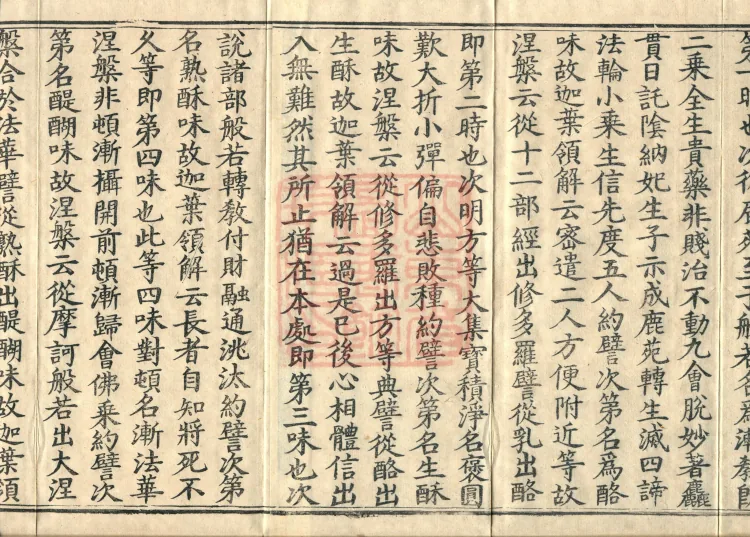 二乗全生貴藥非賤治不動九會脫妙著麤
貫日託陰納妃生子示成鹿苑轉生滅四諦
法輪小乗生信先度五人約譬次第名爲酪
味故迦葉領解云密遣二人方便附近等故
涅槃云從十二部經出修多羅譬從乳出酪
即第二時也次明方等大集寶積淨名褒圓
歎大折小彈偏自悲敗種約譬次第名生酥
味故涅槃云從修多羅出方等典譬從酪出
生酥故迦葉領解云過是已後心相體信出
入無難然其所止猶在本處即第三味也次
說諸部般若轉教付財融通洮汰約譬次第
名熟酥味故迦葉領解云長者自知將死不
乆等即第四味也此等四味對頓名漸法華
涅槃非頓漸攝開前頓漸歸會佛乗約譬次
第名醍醐味故涅槃云從摩訶般若出大涅
槃合於法華譬從熟酥出醍醐味故迦葉領